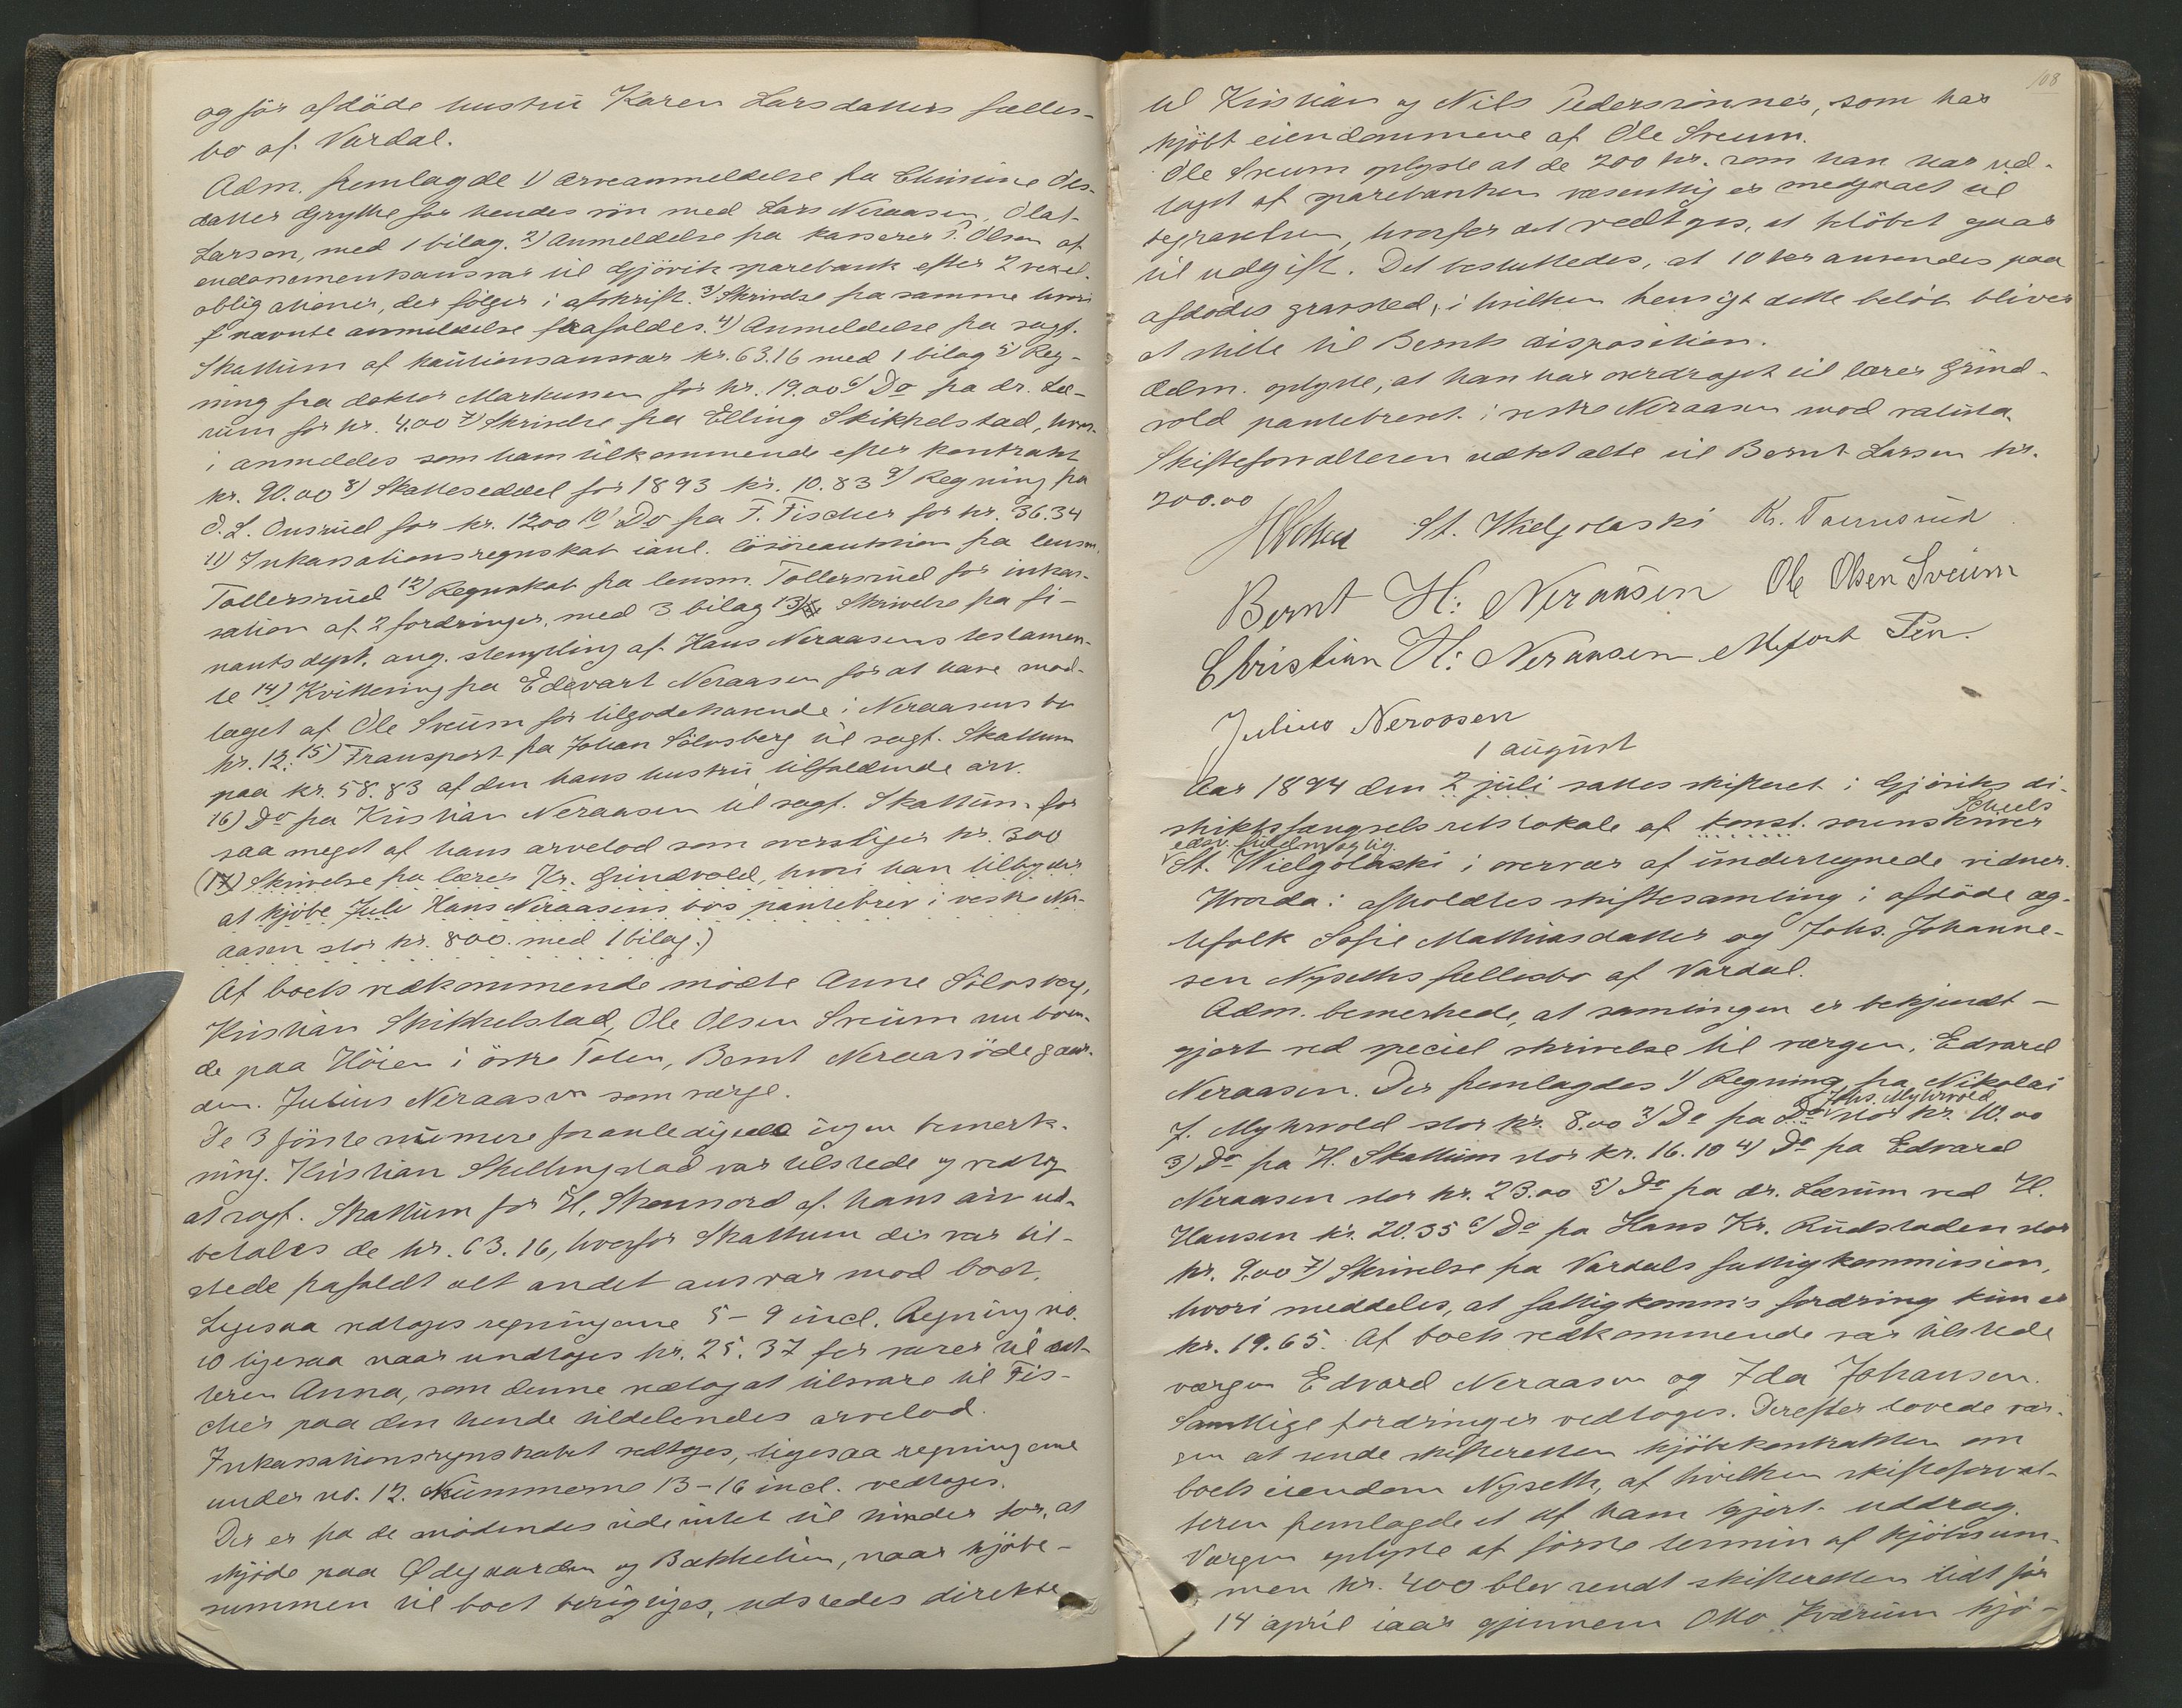 og før afdöde hustru Karen Larsdatters fælles-
bo af Vardal.
Adm. fremlagde 1) Arveanmeldelse fra Christine Ols-
datter Grythe for hendes sön med Lars Neraasen, Olaf
Larsen, med 1 bilag. 2) Anmeldelse fra kasserer P. Olsen af
endossementsansvar til Gjövik sparebank efter 2 vexel-
obligationer, der fölger i afskrift. 3) Skrivelse fra samme hvori
nævnte anmeldelse frafaldes. 4) Anmeldelse fra sagf.
Skattum af kautionsansvar kr. 63.16 med 1 bilag 5) Reg-
ning fra doktor Markussen for kr. 19.00 6) Do fra dr. Læ-
rum for kr. 4.00 7) Skrivelse fra Elling Skikkelstad, hvor-
i anmeldes som ham tilkommende efter kontrakt
kr. 90.00 8) Skatteseddel for 1893 kr. 10.83 9) Regning fra
O. L. Onsrud for kr. 12.00 10) Do fra F. Fischer for kr. 36.34
11) Inkassationsregnskab incl. lösöreauktion fra lensm.
Tollersrud 12) Regnskab fra lensm. Tollersrud for inkas-
sation af 2 fordringer, med 3 bilag 13) Skrivelse fra fi-
nantsdept. ang. stempling af Hans Neraasens testamen-
te 14) Kvittering fra Edevart Neraasen for at have mod-
taget af Ole Sveum for tilgodehavende i Neraasens bo
kr. 12. 15) Transport fra Johan Sölvsberg til sagf. Skattum
paa kr. 58.83 af den hans hustru tilfaldende arv.
16) Do fra Kristian Neraasen til sagf. Skattum for
saa meget af hans arvelod som overstiger kr. 300
(17) Skrivelse fra lærer Kr. Grindvold, hvori han tilbyder
at kjöbe Hans Neraasens bos pantebrev i vestre Ner-
aasen stor kr. 800. med 1 bilag.)
Af boets vedkommende mödte Anne Sölvsberg,
Kristian Skikkelstad, Ole Olsen Sveum nu boen-
de paa Höien i östre Toten, Bernt Neraasödegaar-
den. Julius Neraasen som værge.
De 3 förste numere foranledigede ingen bemerk-
ning. Kristian Skellingstad var tilstede og vedtog
at sagf. Skattum for H. af hans arv ud-
betales de kr. 63.16, hvorfor Skattum der var til-
stede frafaldt alt andet ansvar mod boet.
Ligesaa vedtoges regningerne 5-9 incl. Regning no.
10 ligesaa naar undtages kr. 25.37 for varer til dat-
teren Anna, som denne vedtog at tilsvare til Fis-
cher paa den hende tildelendes arvelod.
Inkassationsregnskabet vedtoges, ligesaa regningerne
under no. 12. Nummerne 13-16 incl. vedtoges.
Der er fra de mödendes side intet til hinder for, at
skjöde paa Ødegaarden og Bakkelien, naar kjöbe-
summen til boet berigtiges, udstedes direkte
108
til Kristian og Nils Pedersönner, som har
kjöbt eiendommene af Ole Sveum.
Ole Sveum oplyste at de 200 kr. som han har ud-
taget af sparebanken væsentlig er medgaaet til
begravelsen, hvorfor det vedtoges, at belöbet gaar
til udgift. Det besluttedes, at 10 kr anvendes paa
afdödes gravsted, i hvilken hensigt dette belöb bliver
at stille til Bernts disposition.
Adm. oplyste, at han har overdraget til lærer Grind-
vold pantebrevet i vestre Neraasen mod valuta.
Skifteforvalteren udbetalte til Bernt Larsen kr.
200.00
St. Wielgolaski
Bernt H: Neraasen Ole Olsen Sveum
Christian H: Neraasen
Julius Neraasen
1 august
Aar 1894 den 2 juli sattes skifteret i Gjöviks di-
strikts fængsels retslokale af konst. sorenskriver Scheels
edsv. fuldmægtig
St. Wielgolaski i overvær af undertegnede vidner.
Hvorda: afholdtes skiftesamling i afdöde æg-
tefolk Sofie Mathiasdatter og Johs. Johanne-
sen Nyseths fællesbo af Vardal.
Adm. bemerkede, at samlingen er bekjendt-
gjort ved speciel skrivelse til værgen, Edvard
Neraasen. Der fremlagdes 1) Regning fra Nikolai
J. Myhrvold stor kr. 8.00 2) Do fra Do Johs. Myhrvold stor kr. 10.00
3) Do fra H. Skattum stor kr. 16.10 4) Do fra Edvard
Neraasen stor kr. 23.00 5) Do fra dr. Lærum ved H.
Hansen kr. 20.35 6) Do fra Hans Kr. Rudstaden stor
kr. 9.00 7) Skrivelse fra Vardals fattigkommission,
hvori meddeles, at fattigkomm's fordring kun er
kr. 19.65. Af boets vedkommende var tilstede
værgen Edvard Neraasen og Ida Johansen.
Samtlige fordringer vedtoges. Derefter lovede vær-
gen at sende skifteretten kjöbekontrakten om
boets eiendom Nyseth, af hvilken skifteforval-
teren fremlagde et af ham gjort uddrag.
Værgen oplyste at förste termin af kjöbesum-
men kr. 400 blev sendt skifteretten tidt för
14 april iaar gjennem Otto Kværum kjö-